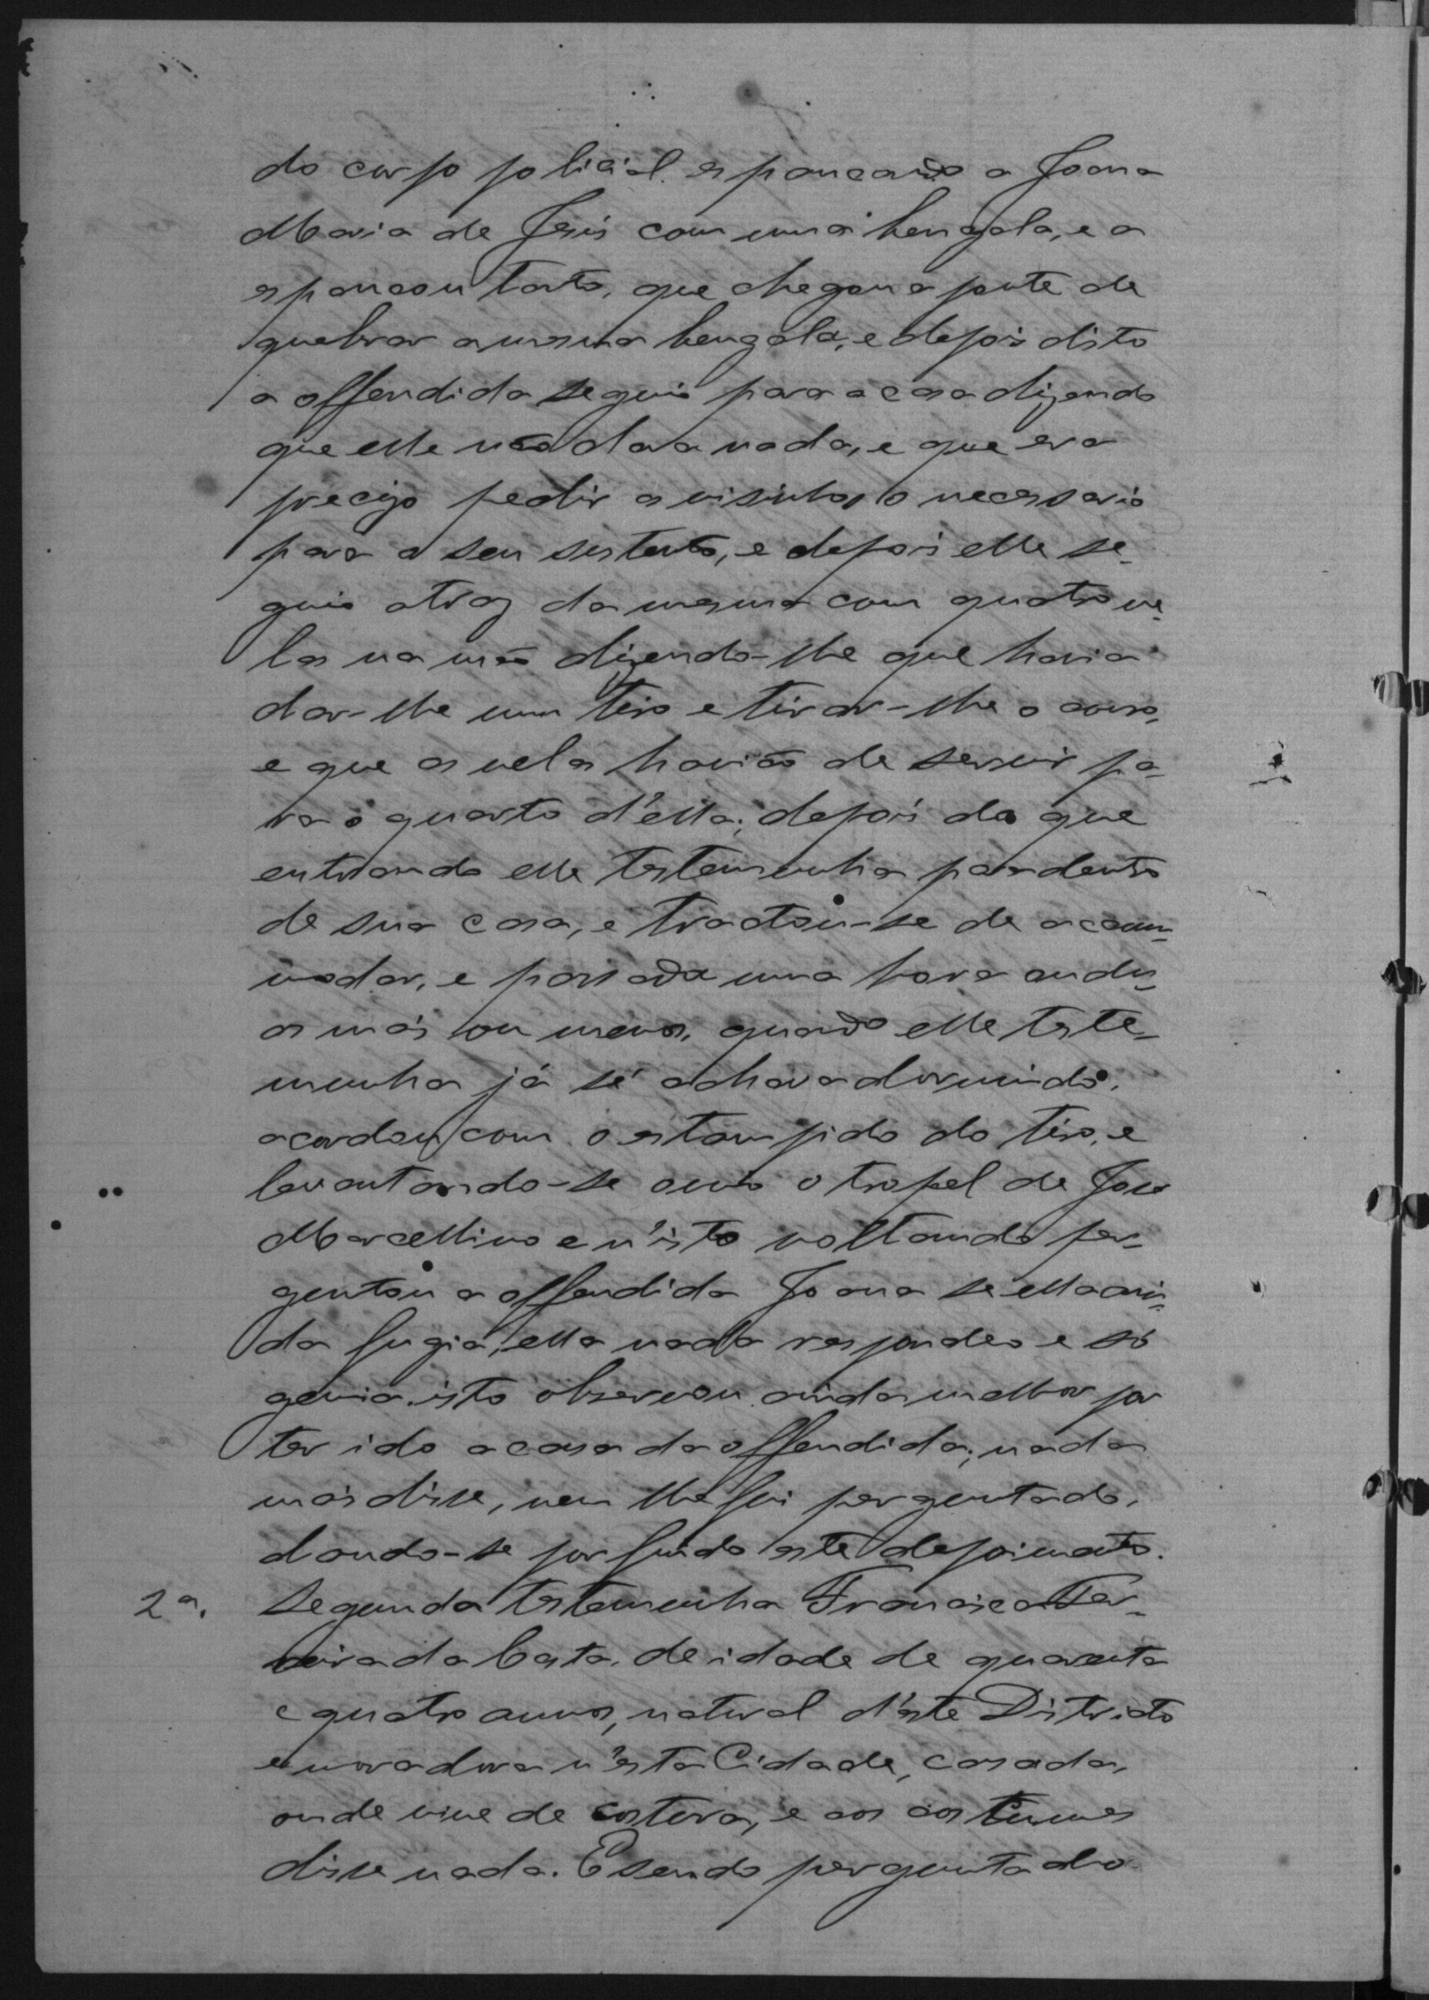 do corpo policial espancando a Joana
Maria de Jesus com uma bengala, e a
espancou tanto, que chegou a ponte de
quebrar a mesma bengala, e depois disto
a offendida seguio para a casa dizendo
que elle não dava nada, e que era
precizo pedir as visinhas o necessario
para o seu sustento, e depois elle se-
guio atraz da mesma com quatro ve-
las na mão dizendo-lhe que havia
dar-lhe um tiro e tirar-lhe o couro,
e que as velas havião de servir pa-
ra o quarto d'ella; depois do que
entrando elle testemunha para dentro
de sua casa, e tractou-se de acom-
modar, e passada uma hora ou du-
as mais ou menos, quando elle teste-
munha já se achava dormindo,
acordou com o estampido do tiro, e
levantando-se ouvio o tropel de José
Marcellino e n'isto voltando per-
guntou a offendida Joana se ella ain-
da fugia, ella nada respondeo e só
gemia. isto observou ainda melhor por
ter ido a casa da offendida; nada
mais disse, nem lhe foi perguntado,
dando-se por findo este depoimento.
2ª. Segunda testemunha Francisca Fer-
reira da Costa, de idade de quarenta
e quatro annos, natural d'este Districto
e moradora n'esta Cidade, casada,
onde vive de costura, e aos costumes
disse nada. E sendo perguntado